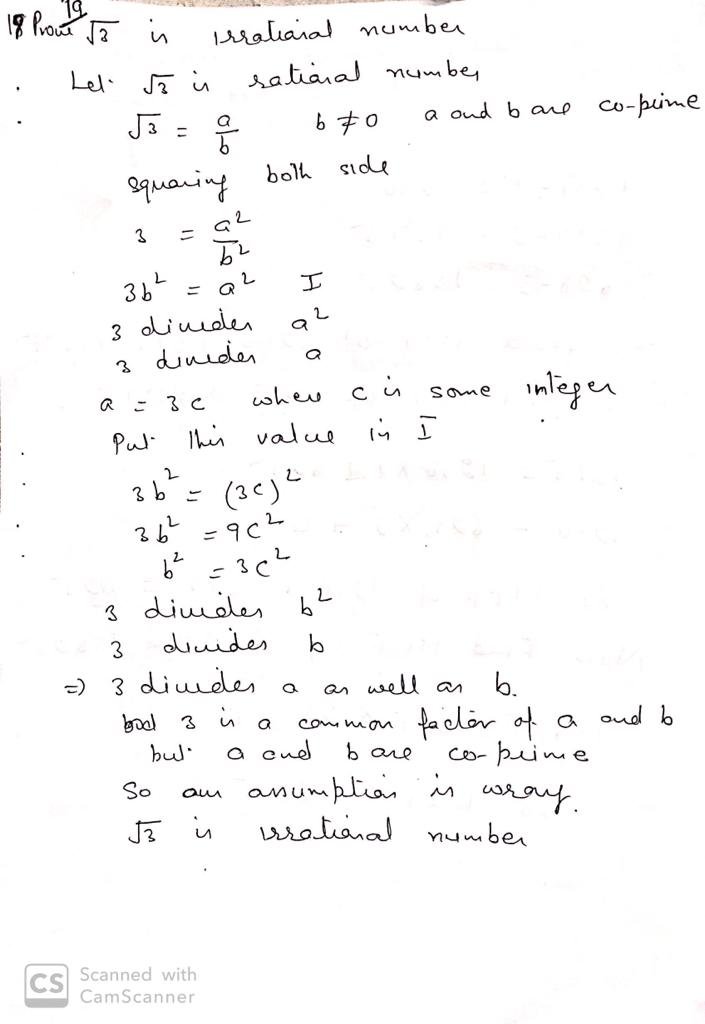 19
18 Prove √3 is irrational number
Let √3 is rational number
√3 = a/b b ≠ 0 a and b are co-prime
squaring both side
3 = a²/b²
3b² = a² I
3 divides a²
3 divides a
a = 3c where c is some integer
Put this value in I
3b² = (3c)²
3b² = 9c²
b² = 3c²
3 divides b²
3 divides b
⇒ 3 divides a as well as b.
3 is a common factor of a and b
but a and b are co-prime
So our assumption is wrong.
√3 is irrational number
CS Scanned with
CamScanner